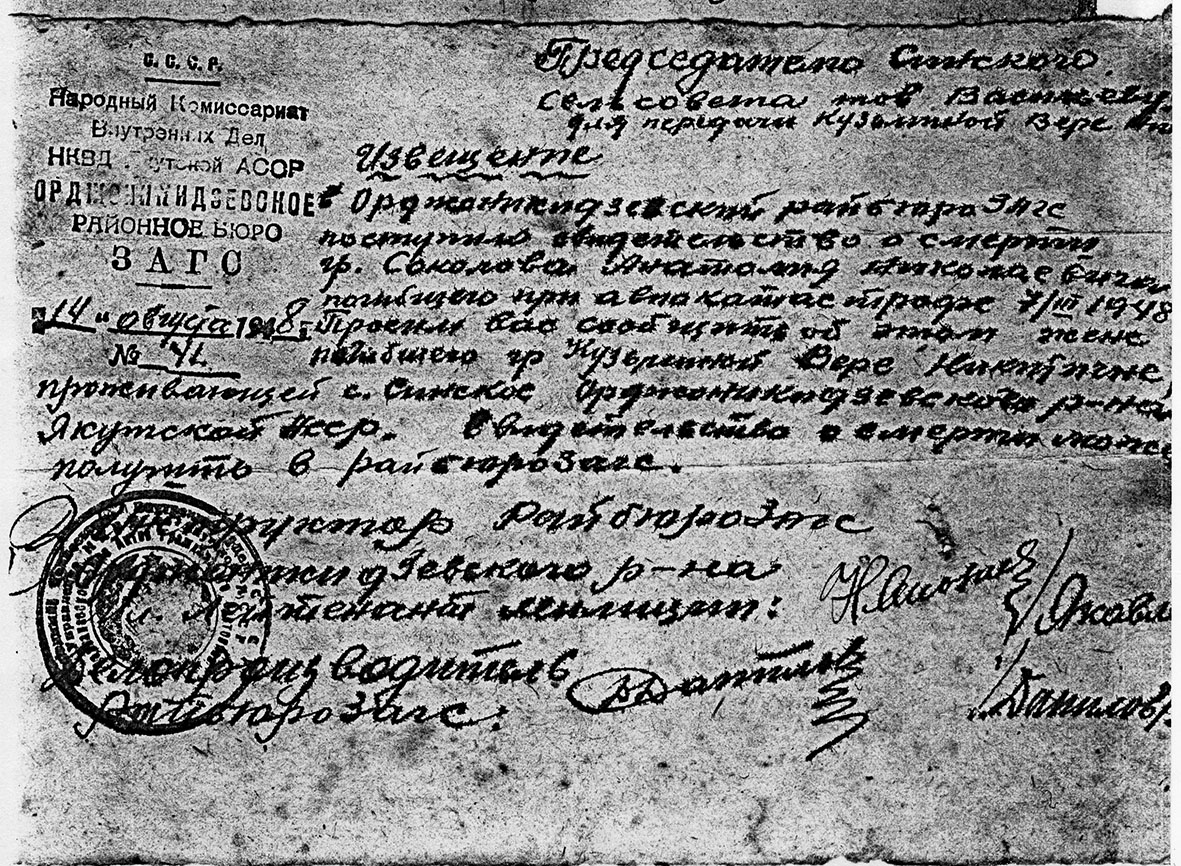 С. С. С. Р.
Народный Комиссариат
Внутренних Дел
НКВД Якутской АССР
ОРДЖОНИКИДЗЕВСКОЕ
РАЙОННОЕ БЮРО
ЗАГС
"14" августа 1948 г.
№ 41
Председателю Синского
сельсовета тов Васильеву
для передачи Кузьминой Вере
Извещение
в Орджоникидзевский райбюро Загс
поступило свидетельство о смерти
гр. Соколова Анатолия Николаевича
погибшего при авиакатастрофе 7/III 1948
Просим вас сообщить об этом жене
погибшего гр Вере Никитичне
проживающей с. Синское Орджоникидзевского р-на
Якутской АССР. Свидетельство о смерти може
получить в райбюро Загс.
Инструктор Райбюро Загс
Орджоникидзевского р-на
Лейтенант милиции:
/Яковл
Делопроизводитель
Райбюро Загс:
Данилов
/Данилов